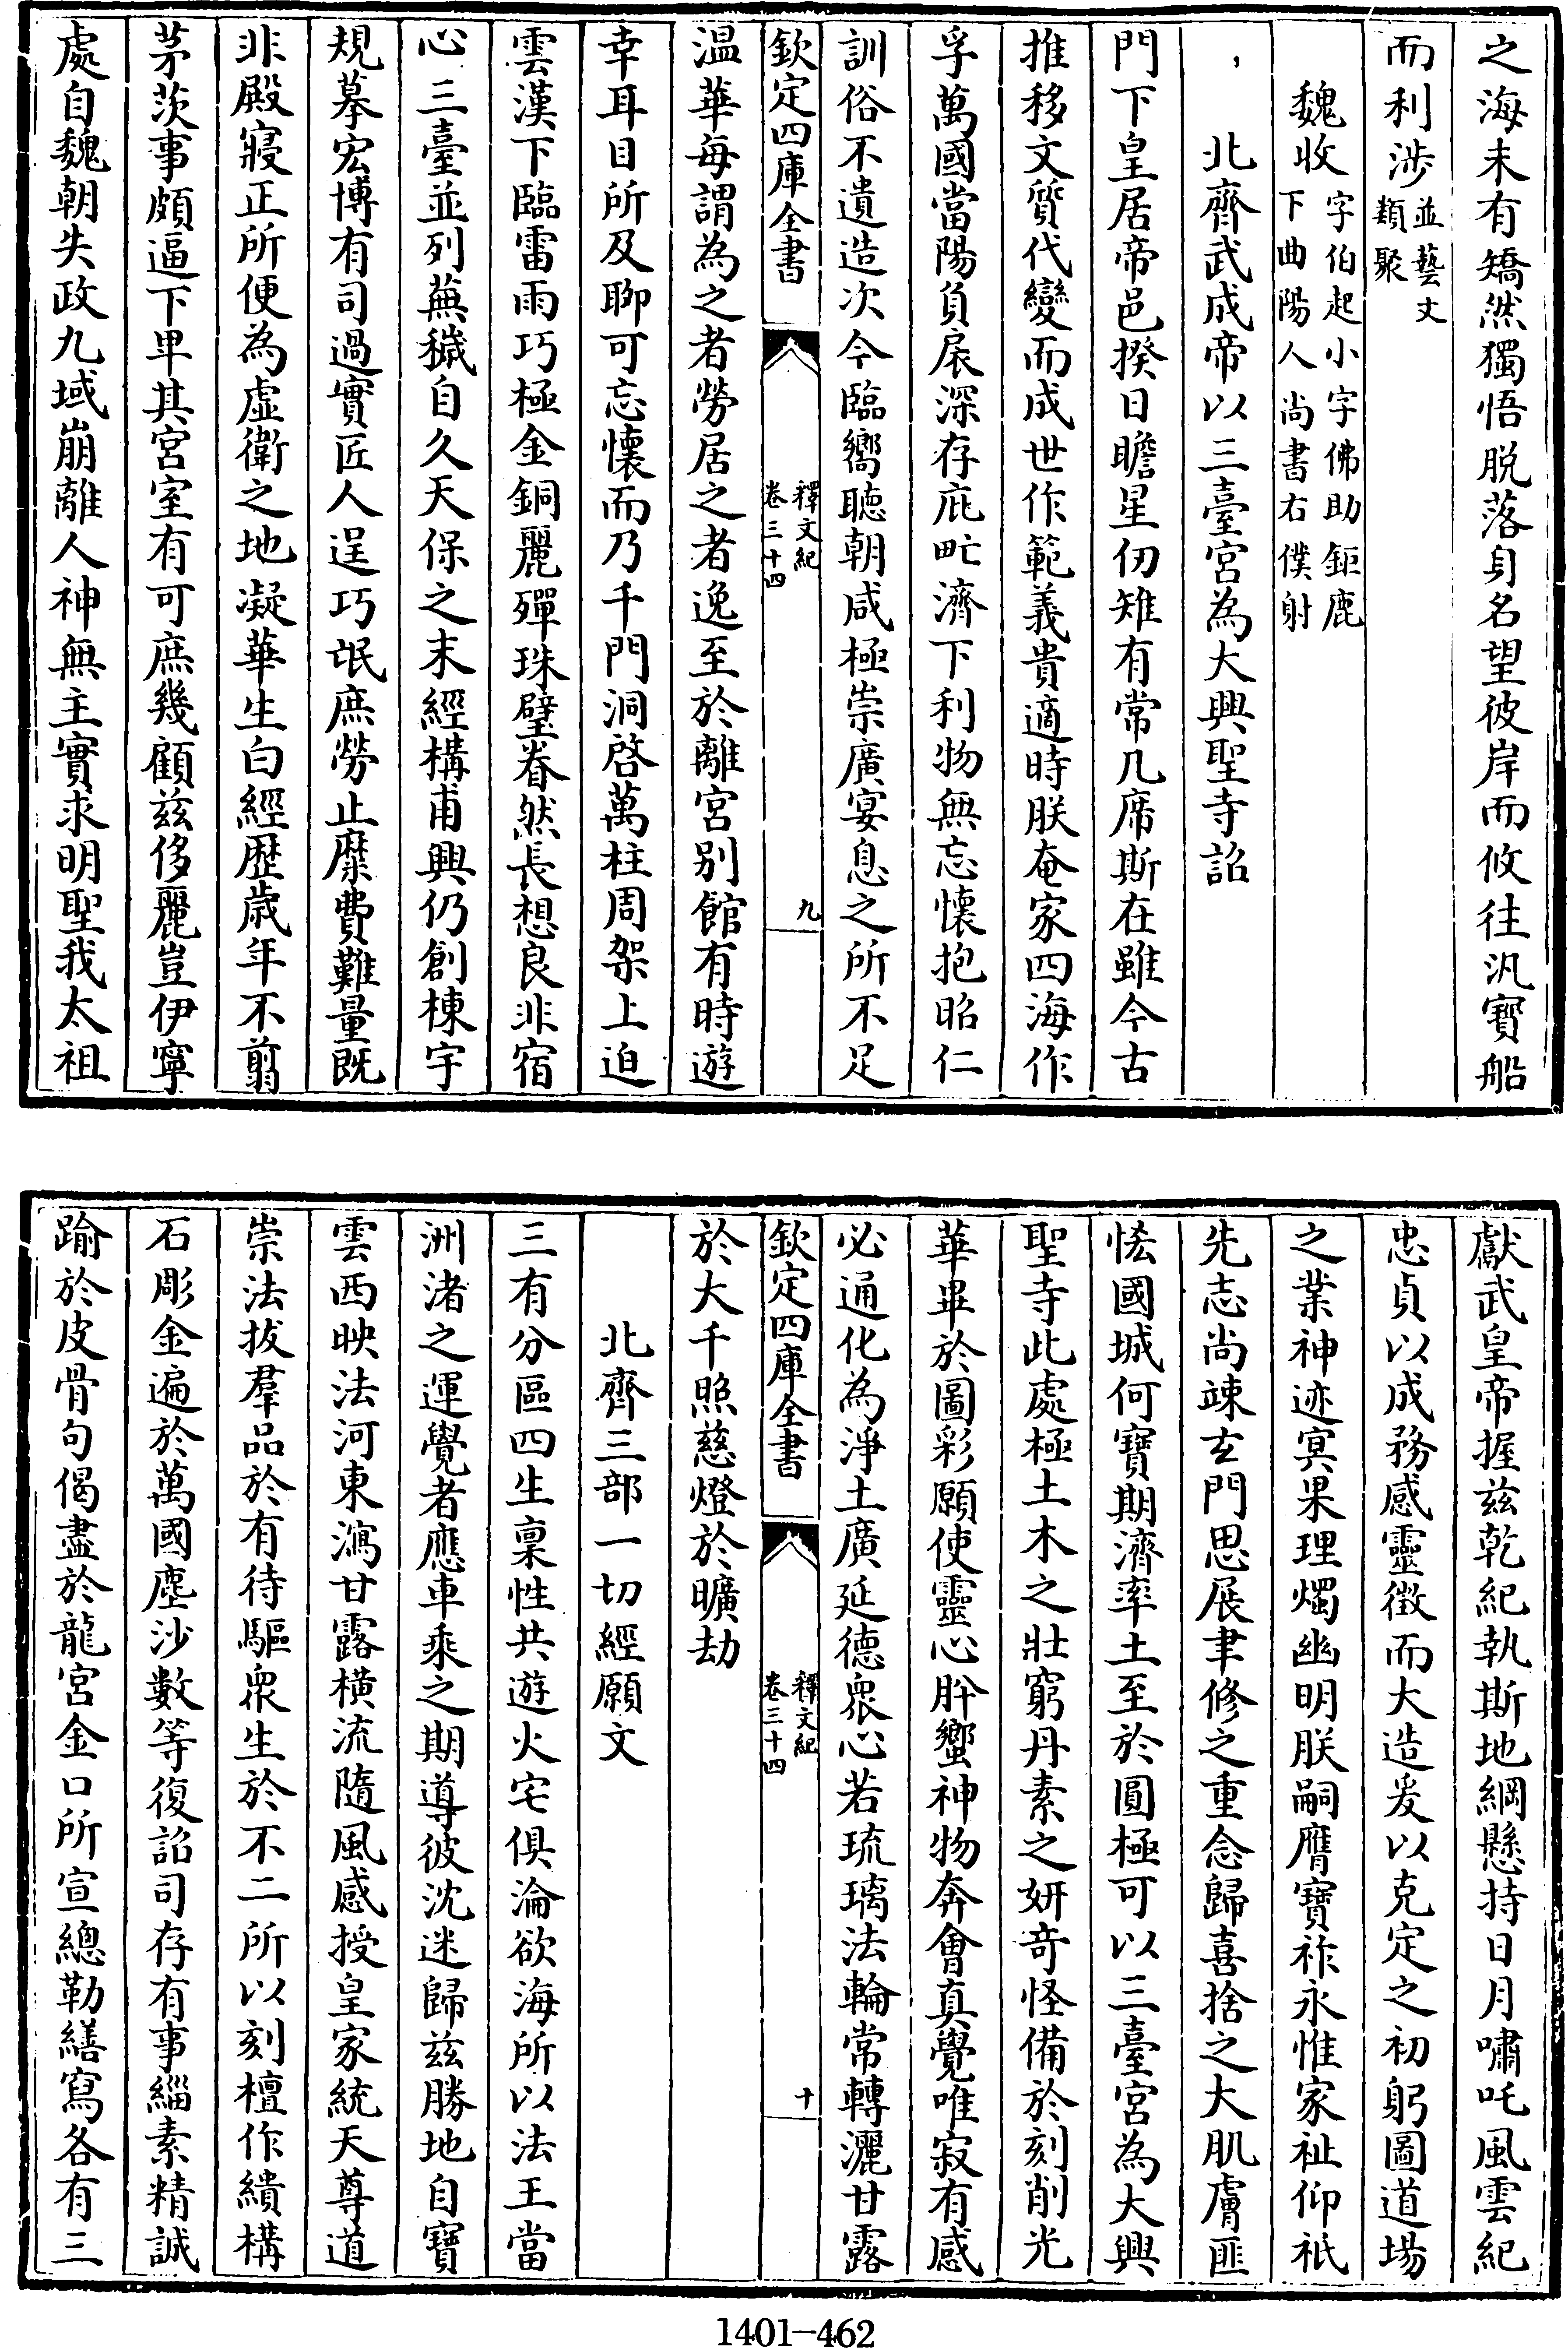 之海未有矯然獨悟脱落身名望彼岸而攸往汎寶船
而利涉並藝文類聚
魏收字伯起小字佛助鉅鹿下曲陽人尚書右僕射
北齊武成帝以三臺宮為大興聖寺詔
門下皇居帝邑揆日瞻星仞雉有常几席斯在雖今古
推移文質代變而成世作範義貴適時朕奄家四海作
孚萬國當陽負扆深存庇甿濟下利物無忘懷抱昭仁
訓俗不遺造次今臨嚮聽朝咸極崇廣宴息之所不足
欽定四庫全書
釋文紀
卷三十四
九
温華每謂為之者勞居之者逸至於離宮别館有時遊
幸耳目所及聊可忘懷而乃千門洞啓萬柱周架上迫
雲漢下臨雷雨巧極金銅麗殫珠璧眷然長想良非宿
心三臺並列蕪穢自久天保之末經構甫興仍創棟宇
規摹宏博有司過實匠人逞巧氓庶勞止縻費難量既
非殿寢正所便為虛衛之地凝華生白經歴歲年不翦
茅茨事頗逼下卑其宮室有可庶幾顧兹侈麗豈伊寧
處自魏朝失政九域崩離人神無主實求明聖我太祖
獻武皇帝握兹乾紀執斯地綱懸持日月嘯吒風雲紀
忠貞以成務感靈徴而大造爰以克定之初躬圖道場
之業神迹冥果理燭幽明朕嗣膺寶祚永惟家祉仰祇
先志尚竦玄門思展聿修之重念歸喜捨之大肌膚匪
恡國城何寶期濟率土至於圓極可以三臺宮為大興
聖寺此處極土木之壯窮丹素之妍奇怪備於刻削光
華畢於圖彩願使靈心肸蠁神物奔會真覺唯寂有感
必通化為淨土廣延德衆心若琉璃法輪常轉灑甘露
欽定四庫全書
釋文紀
卷三十四
十
於大千照慈燈於曠劫
北齊三部一切經願文
三有分區四生稟性共遊火宅俱淪欲海所以法王當
洲渚之運覺者應車乘之期導彼沈迷歸兹勝地自寶
雲西映法河東瀉甘露横流隨風感授皇家統天尊道
崇法拔羣品於有待驅衆生於不二所以刻檀作繢構
石彫金遍於萬國塵沙數等復詔司存有事緇素精誠
踰於皮骨句偈盡於龍宮金口所宣總勒繕寫各有三
1401-462